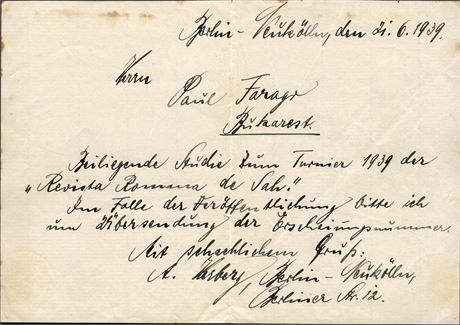 Berlin-Neukölln, den 21.6.1939.
Herrn
Paul Farago
Bukarest.
Beiliegende Studie zum Turnier 1939 der
"Revista Romana de Sah."
Im Falle der Veröffentlichung bitte ich
um Übersendung der Erscheinungsnummer.
Mit schachlichem Gruß:
A. Berlin-Neukölln,
Berliner Str. 12.